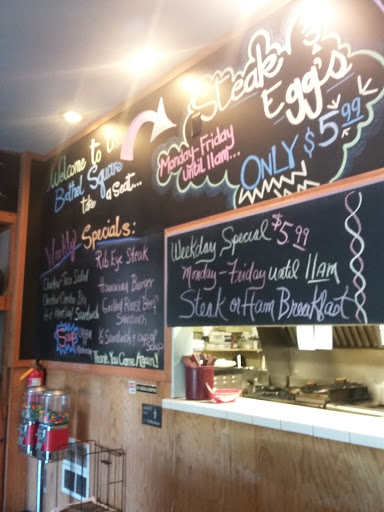 Welcome to the
Bethel Square
take a Seat...
Weekly Specials:
Rib Eye Steak
Chicken Taco Salad
Hawaiian Burger
Grilled Roast Beef
Sandwich
Sandwich
½ Sandwich & cup of
Soup
Thank You Come Again!
Steak &
Egg's
Monday-Friday
until 11am...
ONLY $5.99
Weekday Special $5.99
Monday-Friday until 11am
Steak or Ham Breakfast